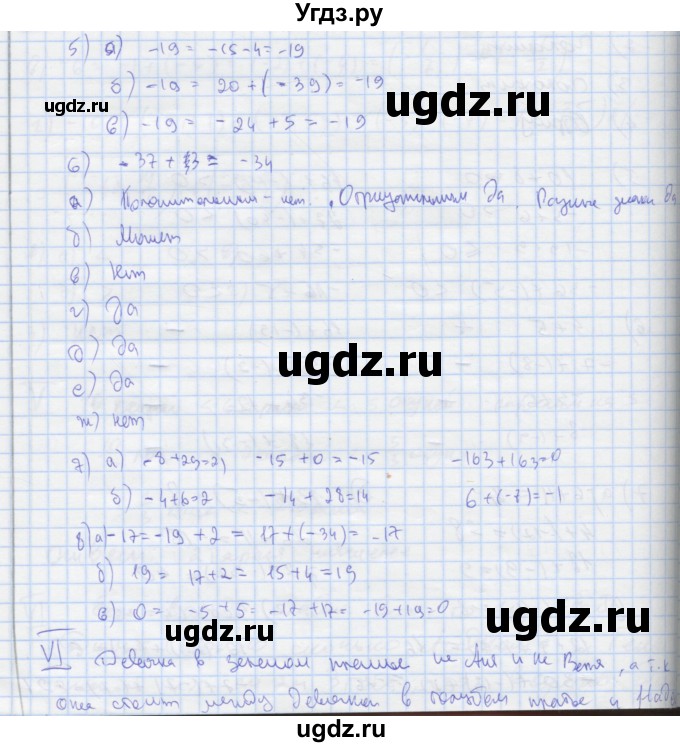 Угдз.ру
5) а) -19 = -15-4 = -19
б) -19 = 20 + (-39) = -19
в) -19 = -24 + 5 = -19
6) -37 + 3 = -34
а) Положительным - нет. Отрицательным Да. Разные знаки Да
б) Может
в) Нет
г) Да
д) Да
е) Да
ж) нет
7) а) -8+29=21 -15+0=-15 -163+163=0
б) -4+6=2 -14+28=14 6+(-7)=-1
8) а) -17=-19+2 = 17+(-34)= -17
б) 19 = 17+2 = 15+4=19
в) 0 = -5+5= -17+17= -19+19=0
VI Девочка в зеленом платье не Аня и не Валя, а т.к
она стоит между девочкой в голубом платье и Надей
ugdz.ru
ugdz.ru
ugdz.ru
ugdz.ru
ugdz.ru
ugdz.ru
ugdz.ru